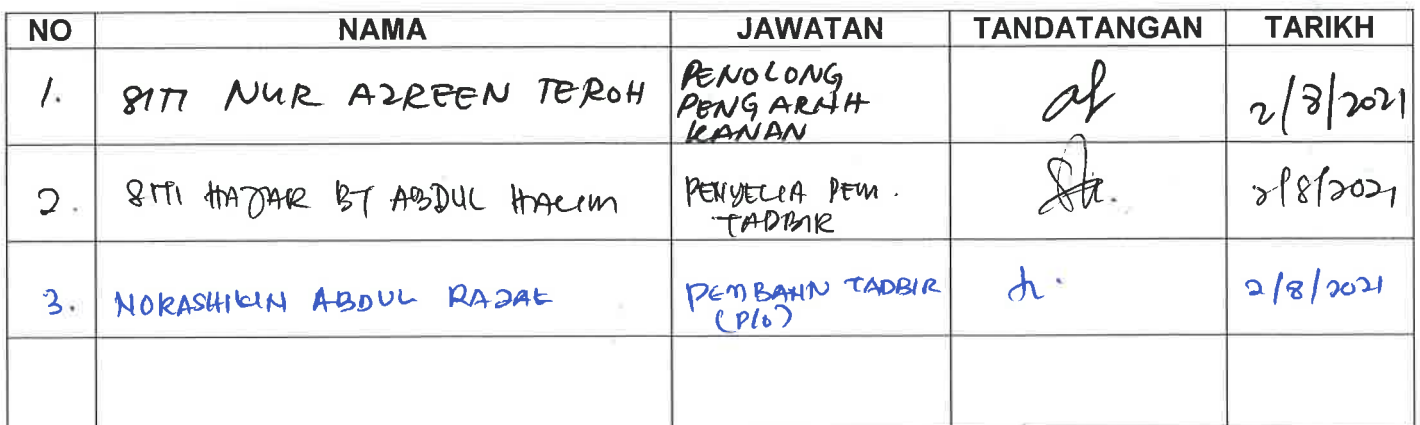 NO NAMA JAWATAN TANDATANGAN TARIKH
1. SITI NUR AZREEN TEROH PENOLONG PENGARAH KANAN 2/8/2021
2. SITI HAJAR BT ABDUL HALIM PENYELIA PEM. TADBIR 2/8/2021
3. NORASHIKIN ABDUL RAZAK PEMBANTU TADBIR (P/O) 2/8/2021